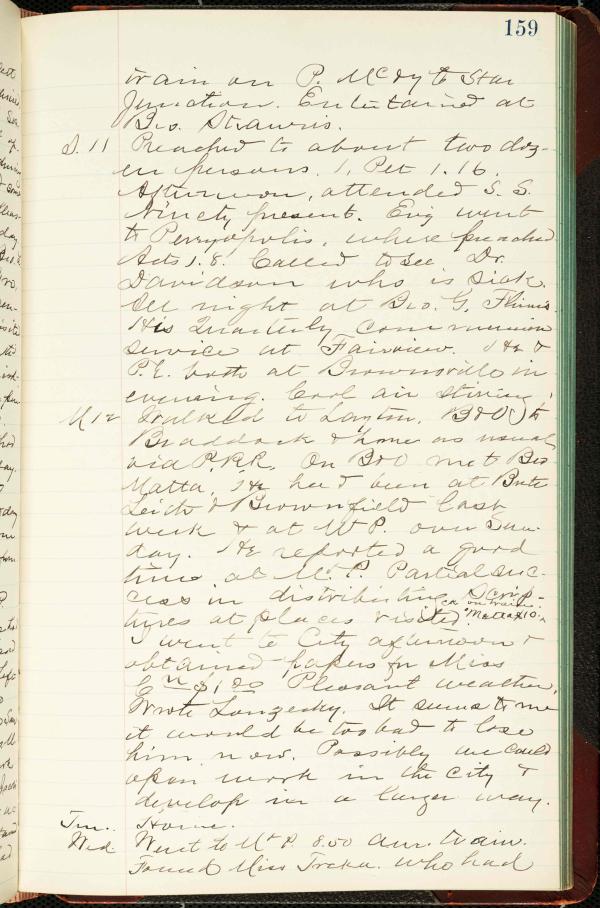 159
train on P. McK & Y to Star
Junction. Entertained at
Bro. Strawns.
S. 11 Preached to about two doz-
en persons. 1. Pet 1.16.
Afternoon, attended S. S.
Ninety present. Evg went
to Perryopolis, where preached
Acts 1.8. Called to see Dr.
Davidson who is sick.
All night at Bro. G.
His Quarterly communion
service at Fairview. He &
P.E. both at Brownsville in
evening. Cool air stirring.
M 12 Walked to Layton. B&O to
Braddock & home as usual
via P.R.R. On B&O met Bro
Matta. He had been at
Leith & Brownfield last
week & at Mt P. over Sun-
day. He reported a good
time at Mt. P. Partial suc-
cess in distributing Scrip-
tures at places visited.
on train.
Matta
I went to City afternoon &
obtained papers for Miss
Pleasant weather.
Wrote It seems to me
it would be too bad to lose
him now. Possibly we could
open work in the City &
develop in a larger way.
Tu.. Home.
Wed Went to Mt P 8.50 am. train.
Found Miss who had